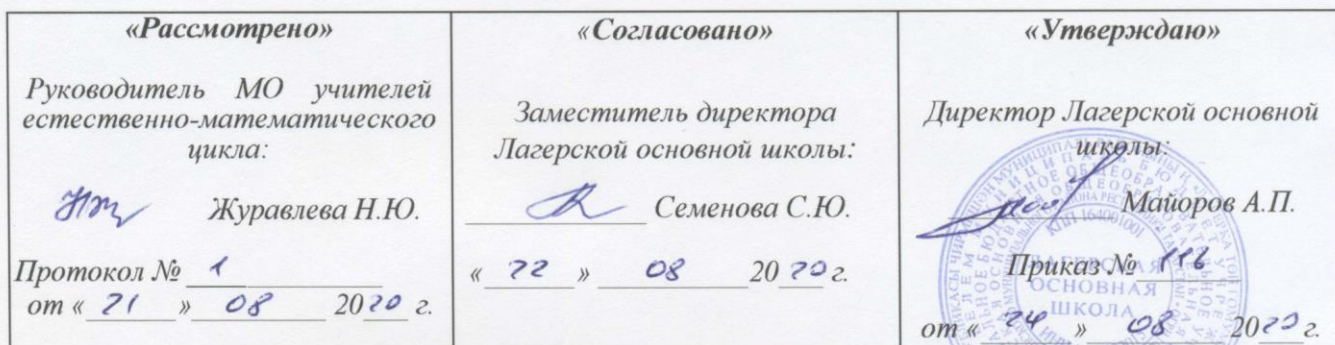 «Рассмотрено»
Руководитель МО учителей
естественно-математического
цикла:
Журавлева Н.Ю.
Протокол № 1
от « 21 » 08 2020 г.
«Согласовано»
Заместитель директора
Лагерской основной школы:
Семенова С.Ю.
« 22 » 08 2020 г.
«Утверждаю»
Директор Лагерской основной
школы:
Майоров А.П.
Приказ № 116
от « 24 » 08 2020 г.
КПП 164001001
ЛАГЕРСКАЯ
ОСНОВНАЯ
ШКОЛА